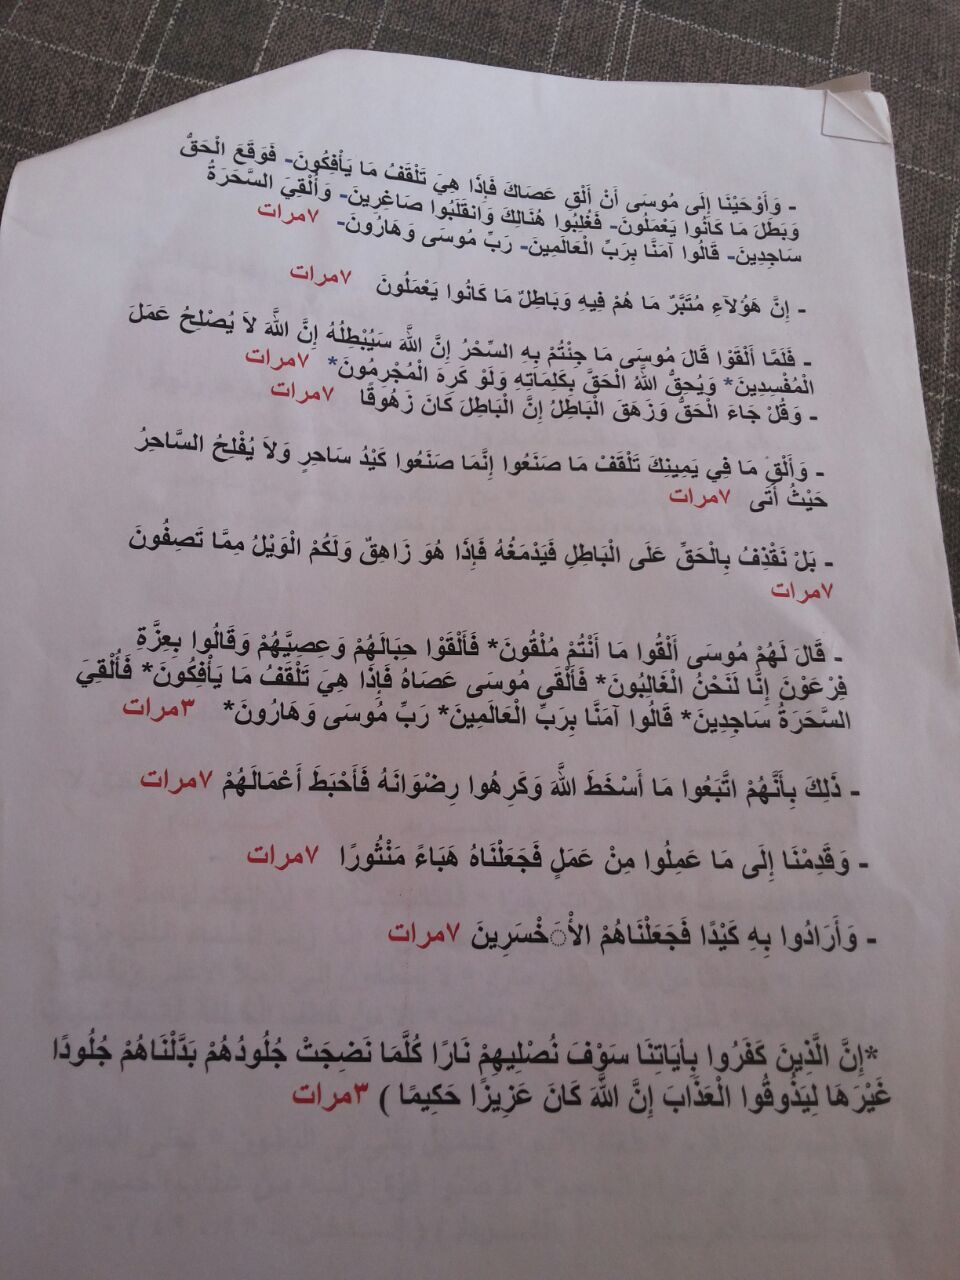 - وَأَوْحَيْنَا إِلَى مُوسَى أَنْ أَلْقِ عَصَاكَ فَإِذَا هِيَ تَلْقَفُ مَا يَأْفِكُونَ- فَوَقَعَ الْحَقُّ
وَبَطَلَ مَا كَانُوا يَعْمَلُونَ- فَغُلِبُوا هُنَالِكَ وَانْقَلَبُوا صَاغِرِينَ- وَأُلْقِيَ السَّحَرَةُ
سَاجِدِينَ- قَالُوا آمَنَّا بِرَبِّ الْعَالَمِينَ- رَبِّ مُوسَى وَهَارُونَ- ٧مرات
- إِنَّ هَؤُلَاءِ مُتَبَّرٌ مَا هُمْ فِيهِ وَبَاطِلٌ مَا كَانُوا يَعْمَلُونَ ٧مرات
- فَلَمَّا أَلْقَوْا قَالَ مُوسَى مَا جِئْتُمْ بِهِ السِّحْرُ إِنَّ اللَّهَ سَيُبْطِلُهُ إِنَّ اللَّهَ لاَ يُصْلِحُ عَمَلَ
الْمُفْسِدِينَ* وَيُحِقُّ اللَّهُ الْحَقَّ بِكَلِمَاتِهِ وَلَوْ كَرِهَ الْمُجْرِمُونَ* ٧مرات
- وَقُلْ جَاءَ الْحَقُّ وَزَهَقَ الْبَاطِلُ إِنَّ الْبَاطِلَ كَانَ زَهُوقًا ٧مرات
- وَأَلْقِ مَا فِي يَمِينِكَ تَلْقَفْ مَا صَنَعُوا إِنَّمَا صَنَعُوا كَيْدُ سَاحِرٍ وَلاَ يُفْلِحُ السَّاحِرُ
حَيْثُ أَتَى ٧مرات
- بَلْ نَقْذِفُ بِالْحَقِّ عَلَى الْبَاطِلِ فَيَدْمَغُهُ فَإِذَا هُوَ زَاهِقٌ وَلَكُمْ الْوَيْلُ مِمَّا تَصِفُونَ
٧مرات
- قَالَ لَهُمْ مُوسَى أَلْقُوا مَا أَنْتُمْ مُلْقُونَ* فَأَلْقَوْا حِبَالَهُمْ وَعِصِيَّهُمْ وَقَالُوا بِعِزَّةِ
فِرْعَوْنَ إِنَّا لَنَحْنُ الْغَالِبُونَ* فَأَلْقَى مُوسَى عَصَاهُ فَإِذَا هِيَ تَلْقَفُ مَا يَأْفِكُونَ* فَأُلْقِيَ
السَّحَرَةُ سَاجِدِينَ* قَالُوا آمَنَّا بِرَبِّ الْعَالَمِينَ* رَبِّ مُوسَى وَهَارُونَ* ٣مرات
- ذَلِكَ بِأَنَّهُمْ اتَّبَعُوا مَا أَسْخَطَ اللَّهَ وَكَرِهُوا رِضْوَانَهُ فَأَحْبَطَ أَعْمَالَهُمْ ٧مرات
- وَقَدِمْنَا إِلَى مَا عَمِلُوا مِنْ عَمَلٍ فَجَعَلْنَاهُ هَبَاءً مَنْثُورًا ٧مرات
- وَأَرَادُوا بِهِ كَيْدًا فَجَعَلْنَاهُمْ الأْ َخْسَرِينَ ٧مرات
*إِنَّ الَّذِينَ كَفَرُوا بِأَيَاتِنَا سَوْفَ نُصْلِيهِمْ نَارًا كُلَّمَا نَضِجَتْ جُلُودُهُمْ بَدَّلْنَاهُمْ جُلُودًا
غَيْرَهَا لِيَذُوقُوا الْعَذَابَ إِنَّ اللَّهَ كَانَ عَزِيزًا حَكِيمًا ) ٣مرات